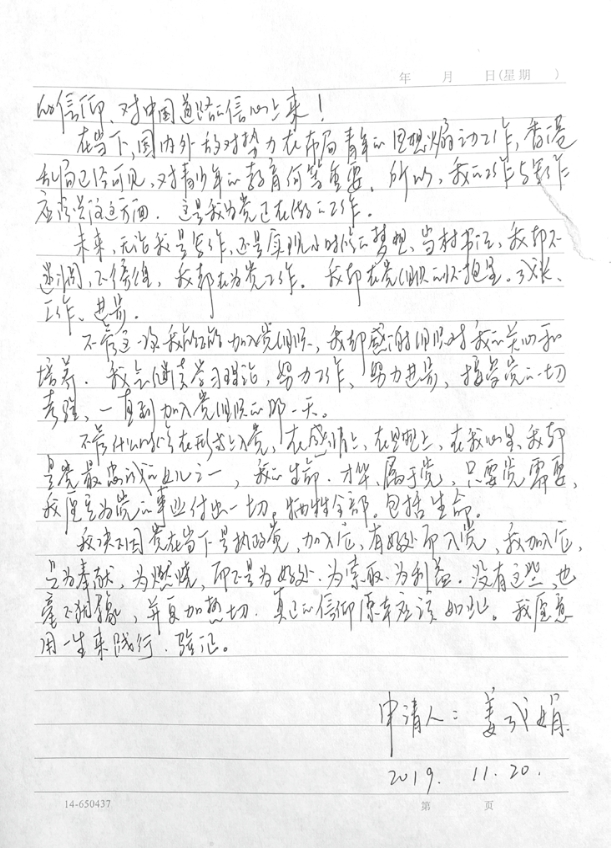 年 月 日(星期 )
的信仰、对中国道路的信心上来！
在当下，国内外敌对势力在布局青年的思想煽动工作，香港
乱局已经可见，对青少年的教育何等重要。所以，我的工作与写作
应该当这方面。这是我为党正在做的工作。
未来，无论我是写作，还是实现小时候的梦想，当村书记，我都不
遗憾，不停息，我都在为党工作。我都在党组织的怀抱里、成长、
工作、进步。
不管这一次我能不能加入党组织，我都感谢组织对我的关心和
培养。我会继续学习理论，努力工作，努力进步，接受党的一切
考验，一直到加入党组织的那一天。
不管什么时候在形式上入党，在感情上，在思想上，在我心里，我都
是党最忠诚的女儿之一，我的生命、才华，属于党，只要党需要，
我愿意为党的事业付出一切，牺牲全部。包括生命。
我决不因党在当下是执政党，加入它，有好处而入党，我加入它，
是为奉献，为燃烧，而不是为好处、为索取、为利益。没有这些，也
毫不犹豫，并更加热切。真正的信仰原本应该如此。我愿意
用一生来践行、验证。
申请人：姜成娟
2019. 11. 20.
14-650437 第 页